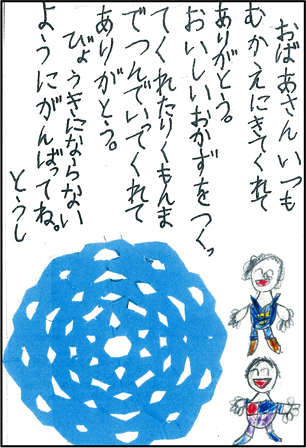 おばあさんいつも
むかえにきてくれて
ありがとう。
おいしいおかずをつくっ
てくれたりくもんま
でつんでいってくれて
ありがとう。
びょうきにならない
ようにがんばってね。
とうし